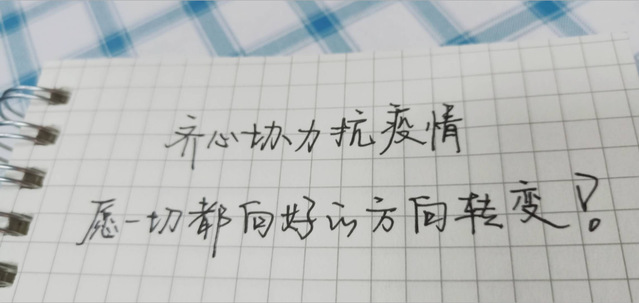 齐心协力抗疫情
愿一切都向好的方向转变！